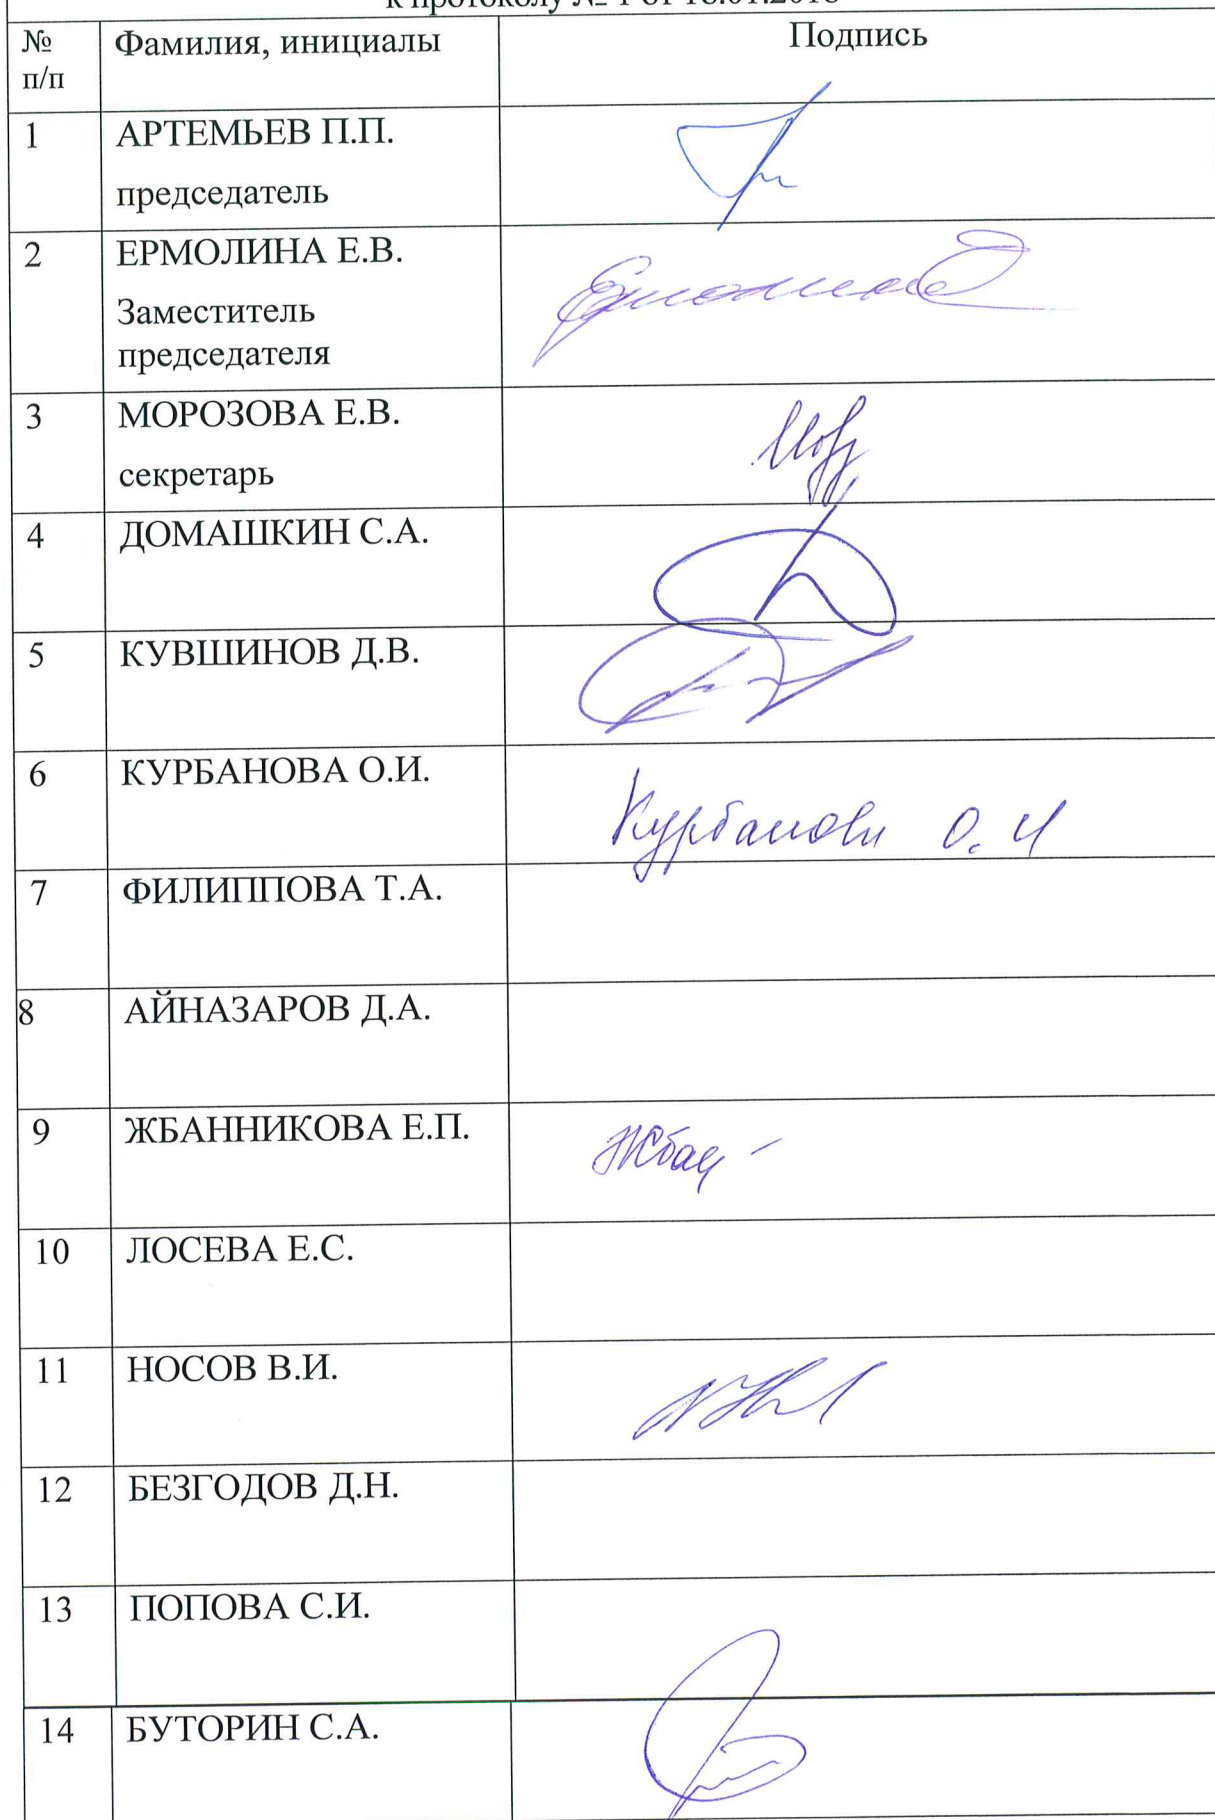 к протоколу № 1 от 18.01.2018
№ Фамилия, инициалы Подпись
п/п
1 АРТЕМЬЕВ П.П.
председатель
2 ЕРМОЛИНА Е.В.
Заместитель
председателя
3 МОРОЗОВА Е.В.
секретарь
4 ДОМАШКИН С.А.
5 КУВШИНОВ Д.В.
6 КУРБАНОВА О.И.
Курбанова О. И
7 ФИЛИППОВА Т.А.
8 АЙНАЗАРОВ Д.А.
9 ЖБАННИКОВА Е.П.
10 ЛОСЕВА Е.С.
11 НОСОВ В.И.
12 БЕЗГОДОВ Д.Н.
13 ПОПОВА С.И.
14 БУТОРИН С.А.